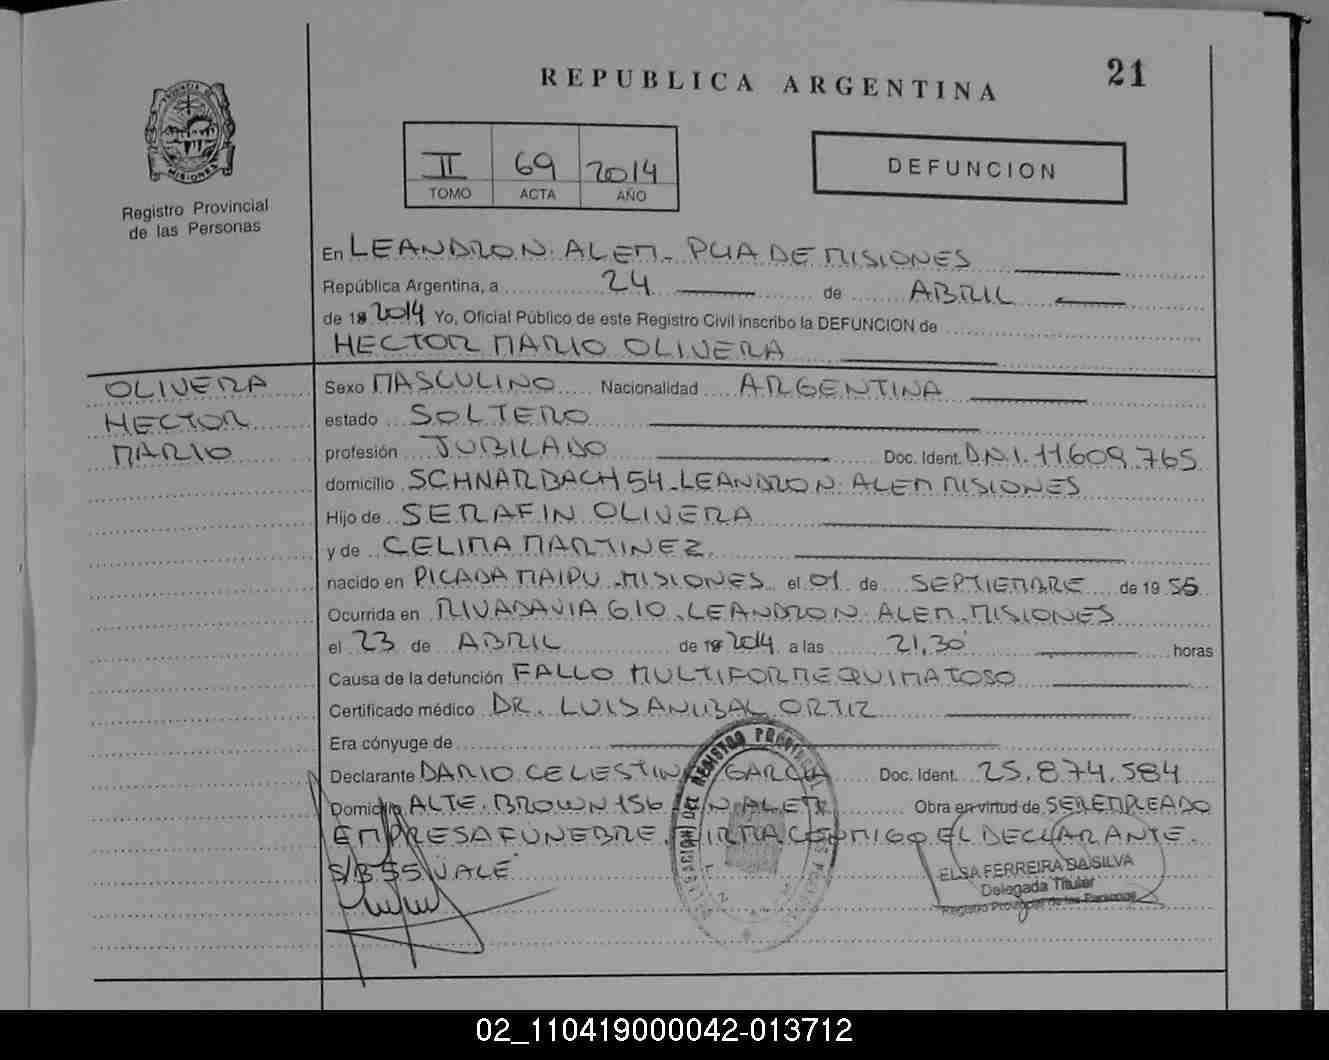 REPUBLICA ARGENTINA
21
PROVINCIA DE
MISIONES
Registro Provincial
de las Personas
II 69 2014
TOMO ACTA AÑO
DEFUNCION
En LEANDRO N. ALEM. PCIA DE MISIONES
República Argentina, a 24 de ABRIL
de 2014 Yo, Oficial Público de este Registro Civil inscribo la DEFUNCION de
HECTOR MARIO OLIVERA
OLIVERA
HECTOR
MARIO
Sexo MASCULINO Nacionalidad ARGENTINA
estado SOLTERO
profesión JUBILADO Doc. Ident. D.N.I. 11.609.765
domicilio SCHNARBACH 54. LEANDRO N. ALEM MISIONES
Hijo de SERAFIN OLIVERA
y de CELIMA MARTINEZ
nacido en PICADA MAIPU. MISIONES el 01 de SEPTIEMBRE de 19 55
Ocurrida en RIVADAVIA 610. LEANDRO N. ALEM. MISIONES
el 23 de ABRIL de 2014 a las 21,30 horas
Causa de la defunción FALLO MULTIFORME QUIMATOSO
Certificado médico DR. LUIS ANIBAL ORTIZ
Era cónyuge de
Declarante DARIO CELESTINO GARCIA Doc. Ident. 25.874.584
Domicilio ALTE. BROWN 156 L. N. ALEM Obra en virtud de SER EMPLEADO
EMPRESA FUNEBRE. FIRMA CONMIGO EL DECLARANTE.
S/B 55 VALE
DELEGACION DEL REGISTRO PROVINCIAL
ELSA FERREIRA DA SILVA
Delegada Titular
Registro Provincial de las Personas
02_110419000042-013712